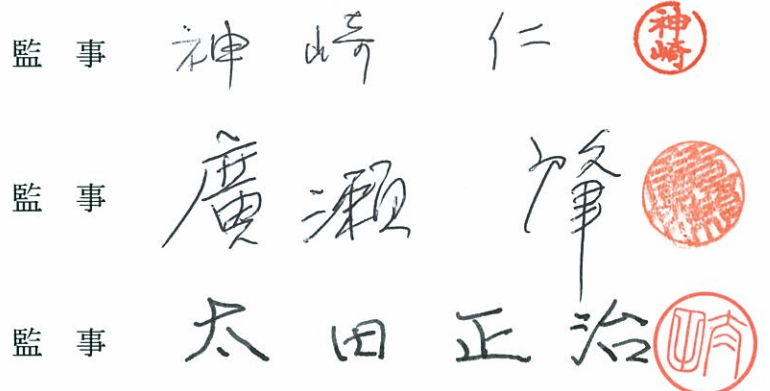 監事 神崎 仁 神崎
監事 廣瀬 肇
監事 太田正治 太田